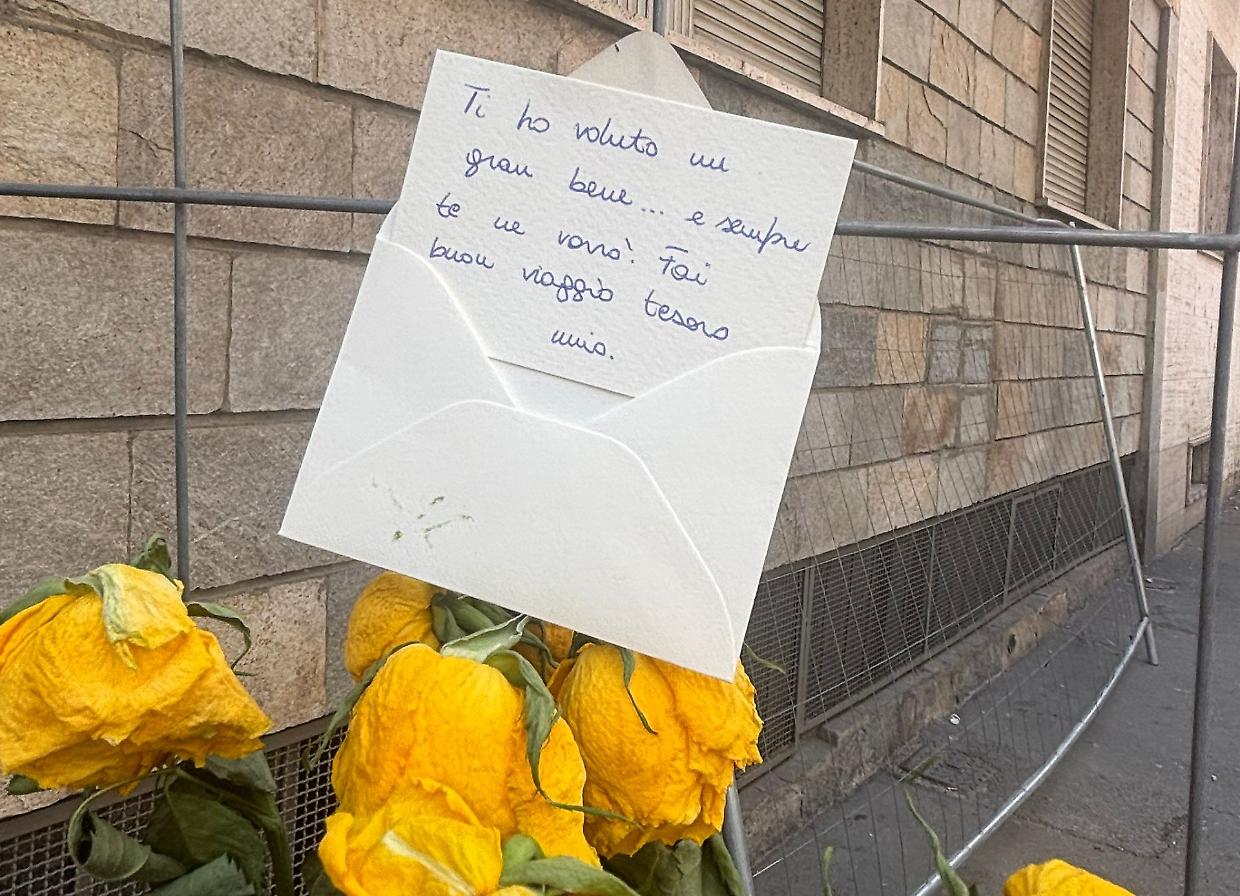 Ti ho voluto un
gran bene... e sempre
te ne vorrò! Fai
buon viaggio tesoro
mio.